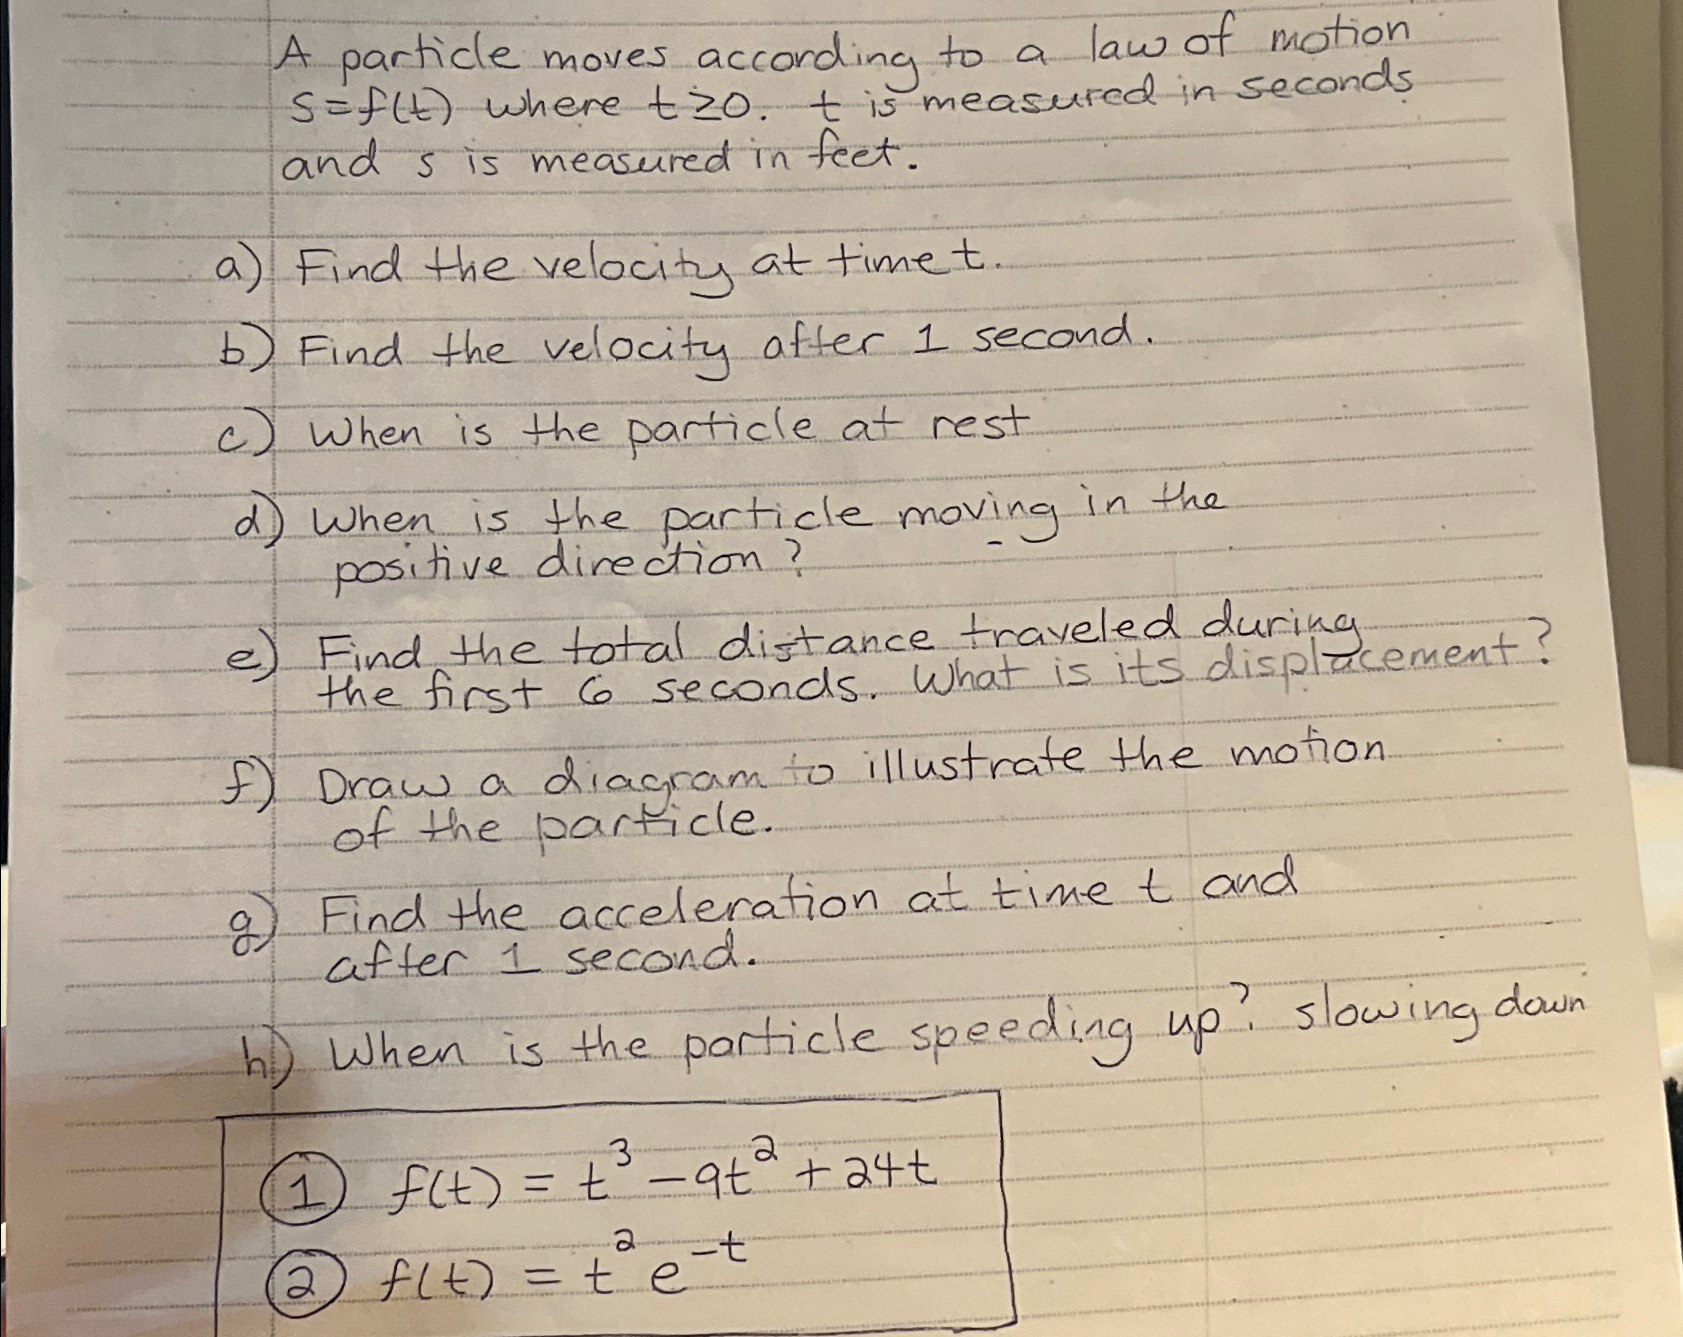 A particle moves according to a law of motion
s=f(t) where t≥0. t is measured in seconds
and s is measured in feet.
a) Find the velocity at time t.
b) Find the velocity after 1 second.
c) When is the particle at rest
d) When is the particle moving in the
positive direction?
e) Find the total distance traveled during
the first 6 seconds. What is its displacement?
f) Draw a diagram to illustrate the motion
of the particle.
g) Find the acceleration at time t and
after 1 second.
h) When is the particle speeding up? slowing down
① f(t) = t³ - 9t² + 24t
② f(t) = t² e⁻ᵗ